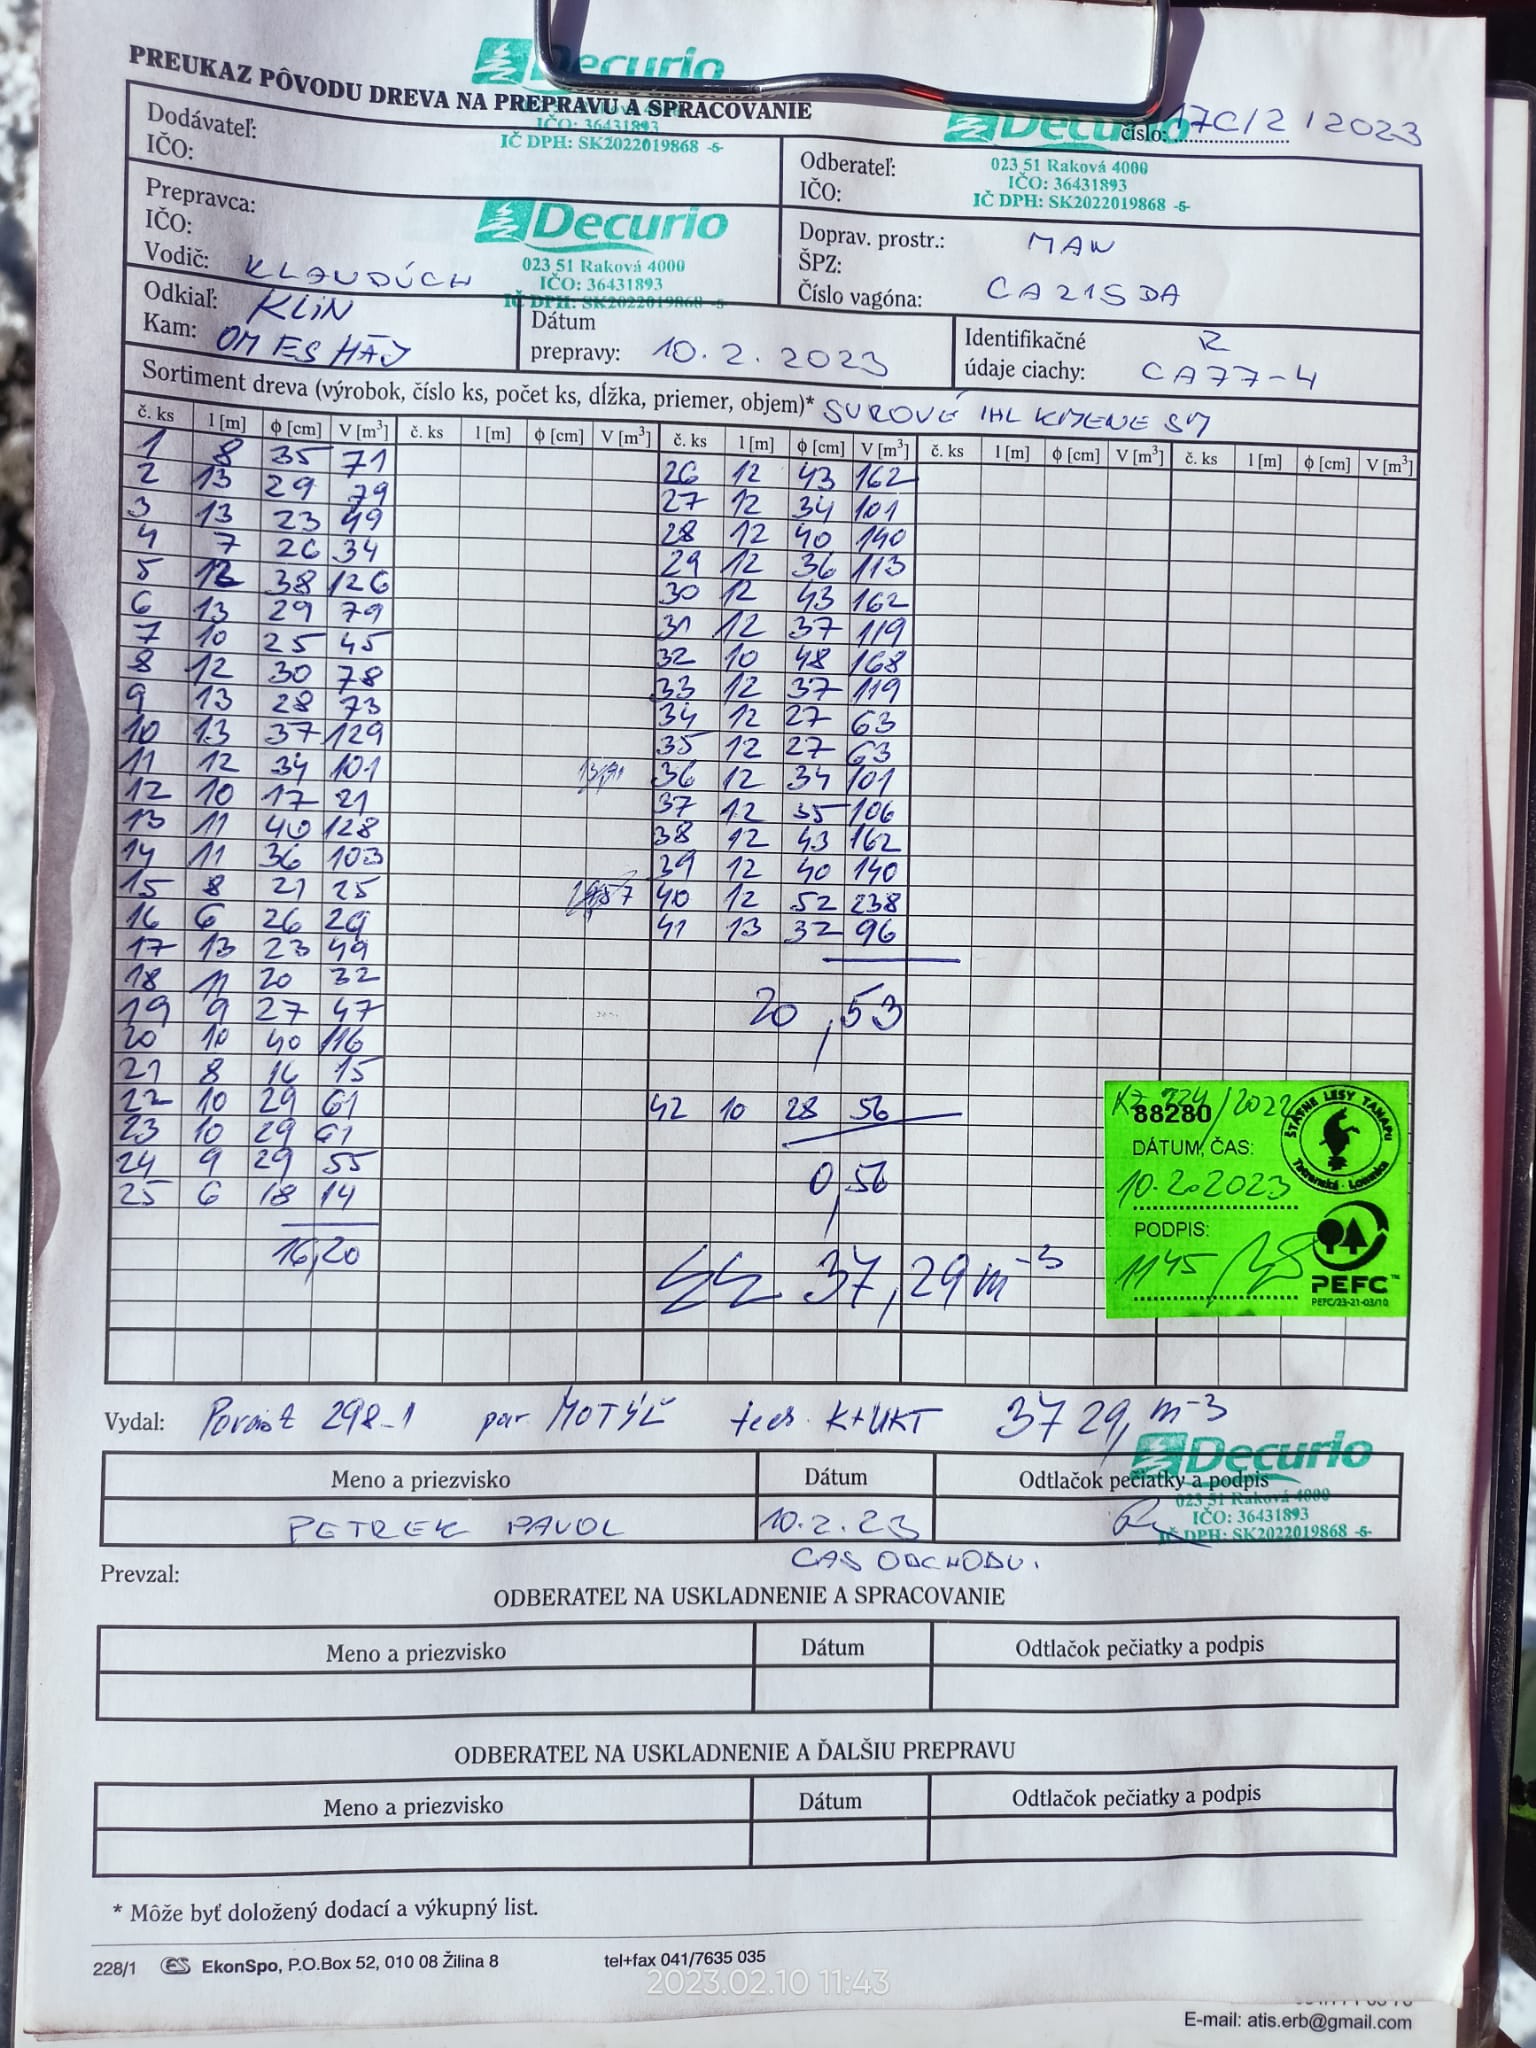 Decurio
PREUKAZ PÔVODU DREVA NA PREPRAVU A SPRACOVANIE
IČO: 36431893
IČ DPH: SK2022019868 -5-
Dodávateľ:
IČO:
Decurio
číslo: 17C/2/2023
Odberateľ:
IČO:
023 51 Raková 4000
IČO: 36431893
IČ DPH: SK2022019868 -5-
Prepravca:
IČO:
Vodič: KLAUDÚCH
Decurio
023 51 Raková 4000
IČO: 36431893
IČ DPH: SK2022019868 -5-
Doprav. prostr.: MAN
ŠPZ:
Číslo vagóna: CA215DA
Odkiaľ: KLIN
Kam: OM ES HÁJ
Dátum
prepravy: 10.2.2023
Identifikačné
údaje ciachy: CA77-4
Sortiment dreva (výrobok, číslo ks, počet ks, dĺžka, priemer, objem)* SUROVÉ IHL KMENE SM
č. ks l [m] ϕ [cm] V [m³] č. ks l [m] ϕ [cm] V [m³] č. ks l [m] ϕ [cm] V [m³] č. ks l [m] ϕ [cm] V [m³] č. ks l [m] ϕ [cm] V [m³]
1 8 35 71 26 12 43 162
2 13 29 79 27 12 34 101
3 13 23 49 28 12 40 140
4 7 26 34 29 12 36 113
5 12 38 126 30 12 43 162
6 13 29 79 31 12 37 119
7 10 25 45 32 10 48 168
8 12 30 78 33 12 37 119
9 13 28 73 34 12 27 63
10 13 37 129 35 12 27 63
11 12 34 101 36 12 34 101
12 10 17 21 37 12 35 106
13 11 40 128 38 12 43 162
14 11 36 103 39 12 40 140
15 8 21 25 40 12 52 238
16 6 26 29 41 13 32 96
17 13 23 49
18 11 20 32
19 9 27 47 20,53
20 10 40 116
21 8 16 15
22 10 29 61 42 10 28 56
23 10 29 61
24 9 29 55 0,56
25 6 18 14
16,20 37,29 m-3
88280
ŠTÁTNE LESY TANAPU
Tatranská Lomnica
DÁTUM, ČAS:
10.2.2023
PODPIS:
1145
PEFC™
PEFC/23-21-03/10
Vydal: Porast 298-1 par MOTÝĽ tech. K+UKT 37 29, m-3
Decurio
Meno a priezvisko Dátum Odtlačok pečiatky a podpis
023 51 Raková 4000
IČO: 36431893
IČ DPH: SK2022019868 -5-
PETREK PAVOL 10.2.23
ČAS ODCHODU.
Prevzal:
ODBERATEĽ NA USKLADNENIE A SPRACOVANIE
Meno a priezvisko Dátum Odtlačok pečiatky a podpis
ODBERATEĽ NA USKLADNENIE A ĎALŠIU PREPRAVU
Meno a priezvisko Dátum Odtlačok pečiatky a podpis
* Môže byť doložený dodací a výkupný list.
228/1 ES EkonSpo, P.O.Box 52, 010 08 Žilina 8 tel+fax 041/7635 035
2023.02.10 11:43
E-mail: atis.erb@gmail.com